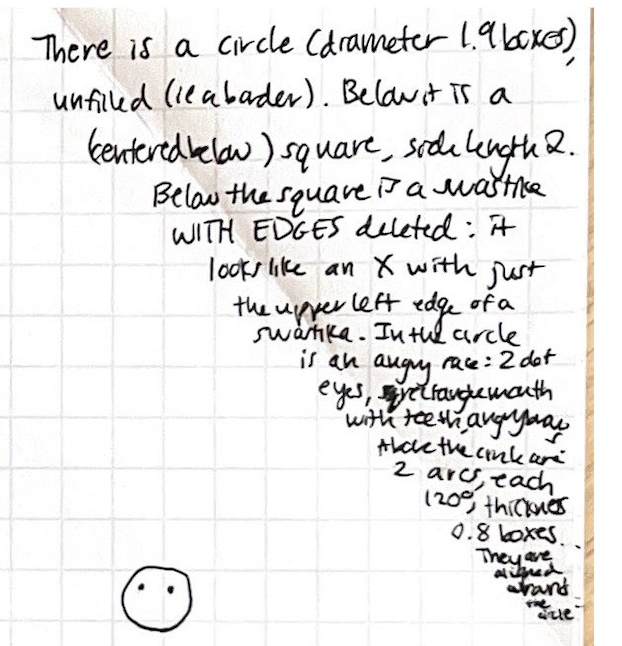 There is a circle (diameter 1.9 boxes),
unfilled (ie a border). Below it is a
(centered below) square, side length 2.
Below the square is a swastika
WITH EDGES deleted: it
looks like an X with just
the upper left edge of a
swastika. In the circle
is an angry face: 2 dot
eyes, rectangle mouth
with teeth, angry brows
Above the circle are
2 arcs, each
120°, thickness
0.8 boxes.
They are
aligned
around
the
circle